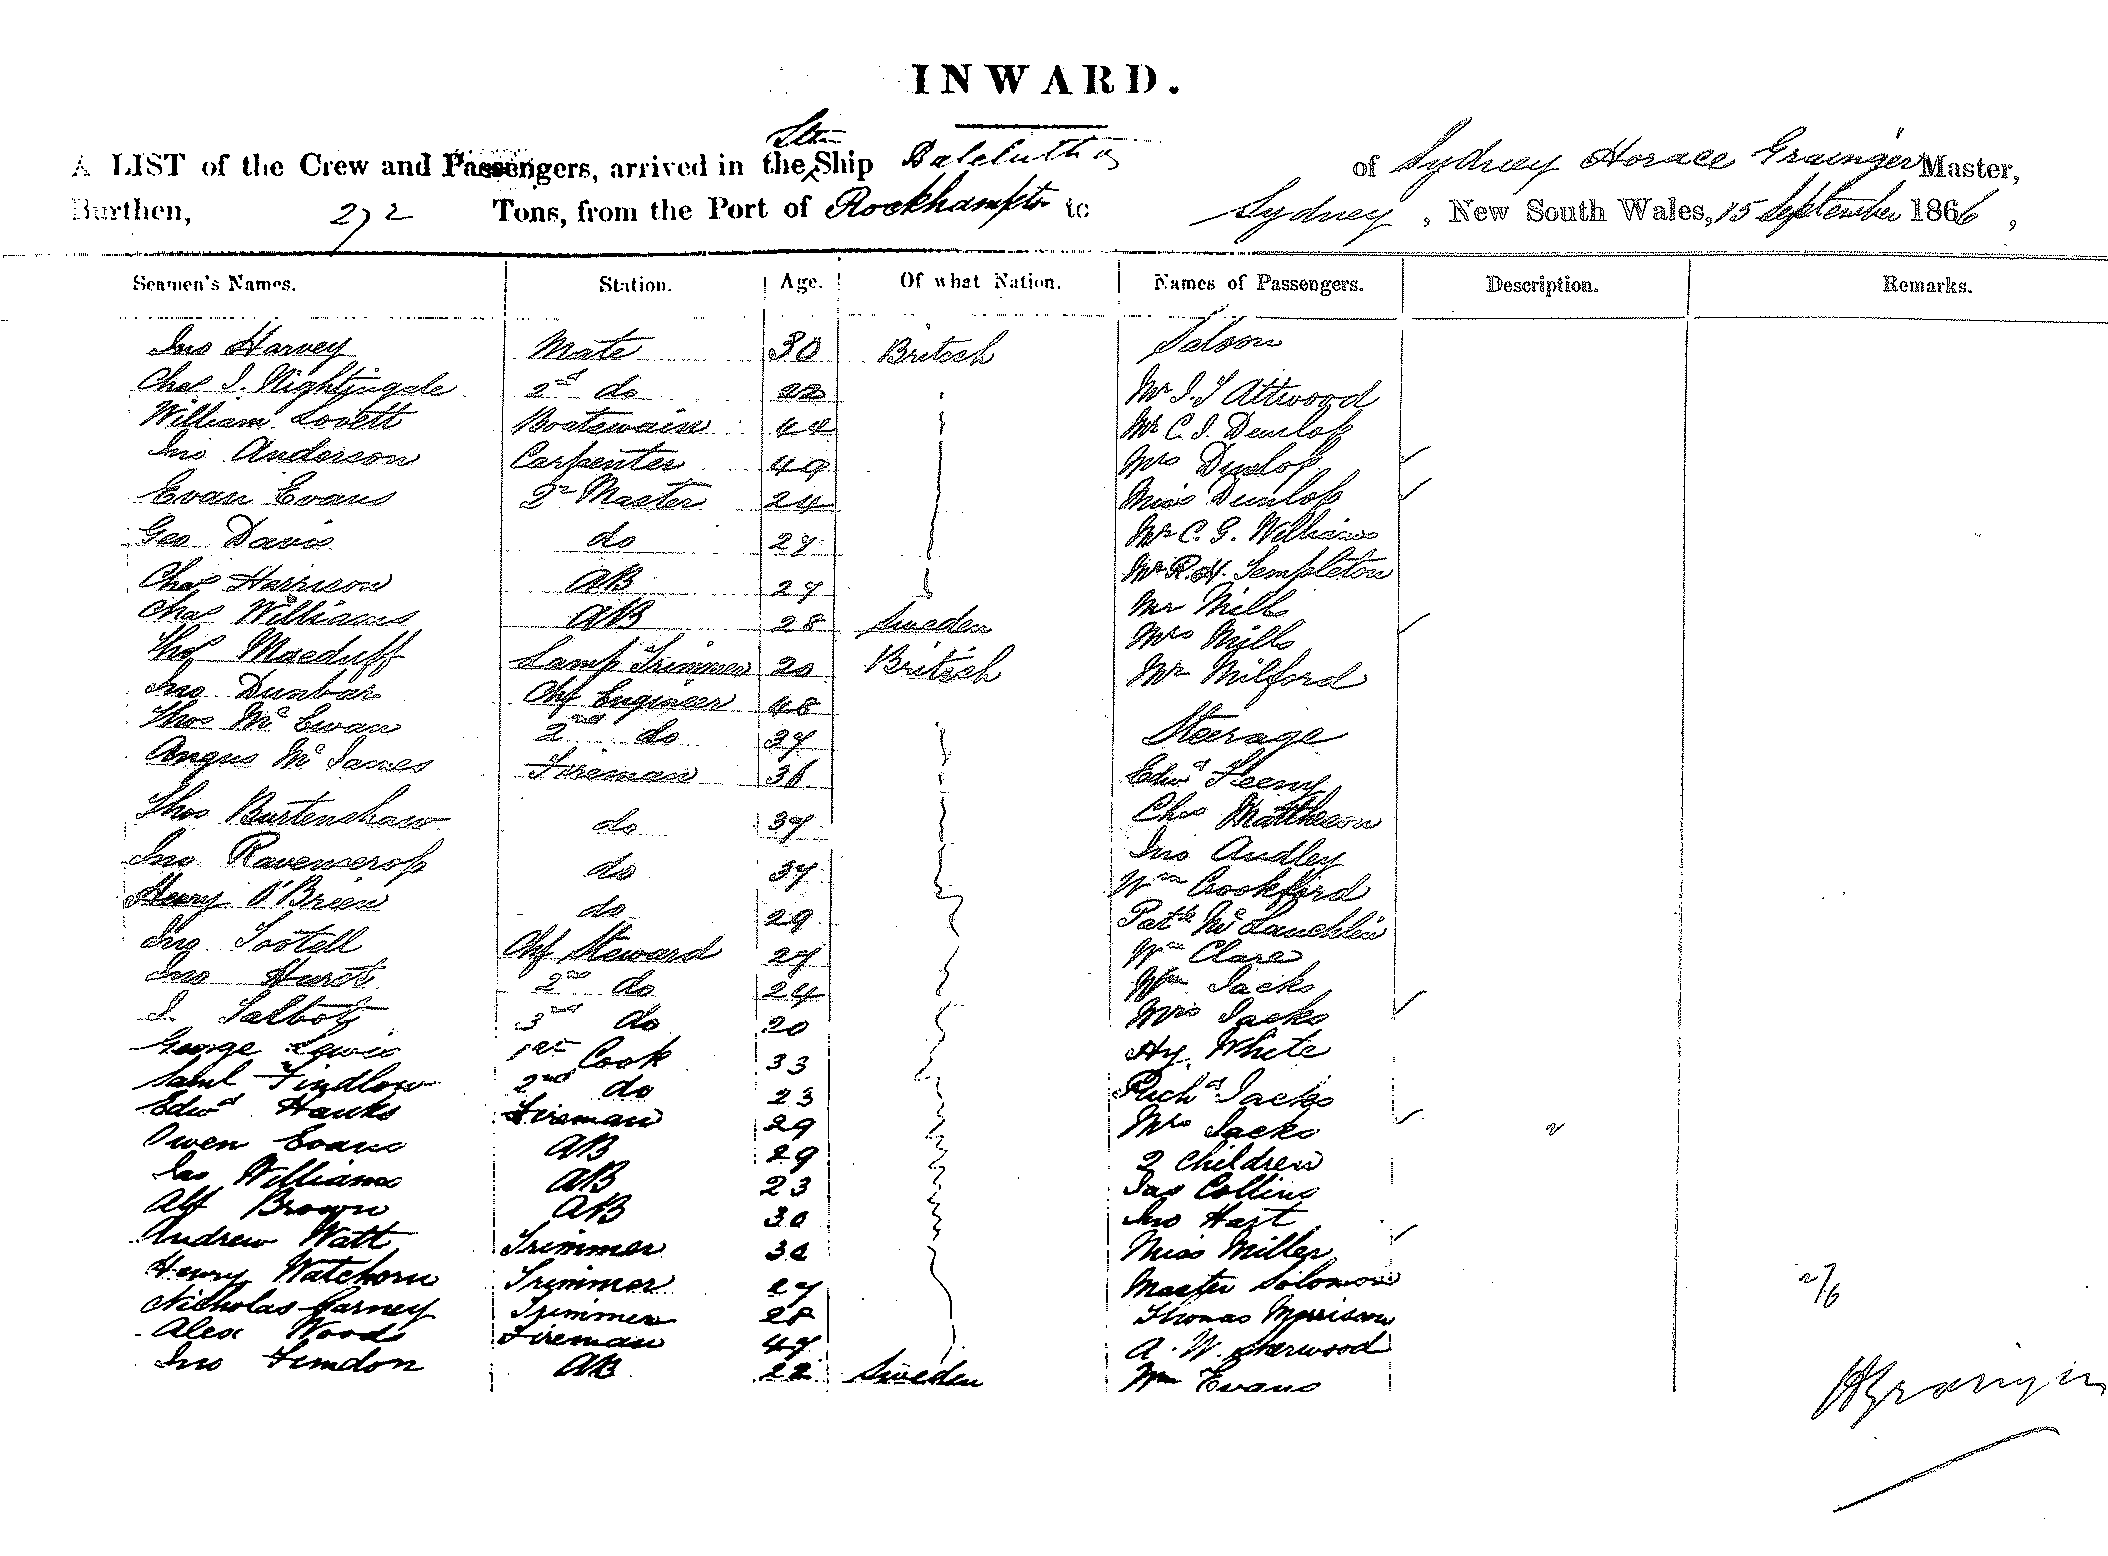 INWARD.
Stm
A LIST of the Crew and Passengers, arrived in the Ship Balclutha of Sydney Horace Grainger Master,
Burthen, 272 Tons, from the Port of Rockhampton to Sydney, New South Wales, 15 September 1866,
Seamen's Names. Station. Age. Of what Nation. Names of Passengers. Description. Remarks.
Jno Harvey Mate 30 British Saloon
Chas J. Nightingale 2nd do 22 Mr J. T Attwood
William Lovett Boatswain 44 Mr C. J. Dunlop
Jno Anderson Carpenter 49 Mrs Dunlop
Evan Evans Qr Master 24 Miss Dunlop
Geo Davis do 27 Mr C. G. Williams
Chas Harrison AB 27 Mr R. H. Templeton
Chas Williams AB 28 Sweden Mr Mills
Thos Macduff Lamp Trimmer 20 British Mrs Mills
Jno Dunbar Chf Engineer 48 Mr Milford
Thos McEwan 2nd do 37 Steerage
Angus McJames Fireman 36 Edwd Feeny
Thos Burtenshaw do 37 Chs Mattheson
Jno Ravenscrop do 37 Jno Audley
Henry O'Brien do 29 Wm Crookford
Jno Tootell Chf Steward 27 Patk McLauchlin
Jno Hurst 2nd do 24 Wm Clare
J. Talbot 3rd do 20 Wm Jacks
George Lewis 1st Cook 33 Mrs Jacks
Saml Findlow 2nd do 23 Hy. White
Edwd Hanks Fireman 29 Richd Jacks
Owen Evans AB 29 Mrs Jacks
Jas Williams AB 23 2 Children
Alf Brown AB 30 Jas Collins
Andrew Watt Trimmer 30 Jno Hart
Henry Watchorn Trimmer 27 Miss Miller
Nicholas Garney Trimmer 28 Master Solomon 2/6
Alex Woods Fireman 47 Thomas Morrison
Jno Lundon AB 22 Sweden A. W. Sherwood
Wm Evans
HGrainger